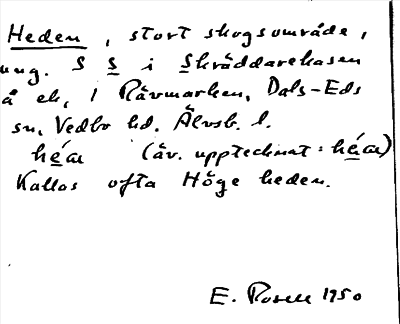 Heden, stort skogsområde,
ung. S S i Skräddarekasen
å ek, i Rävmarken, Dals-Eds
sn, Vedbo hd. Älvsb. l.
(äv. upptecknat:
Kallas ofta Höge heden.
E. Rosell 1950